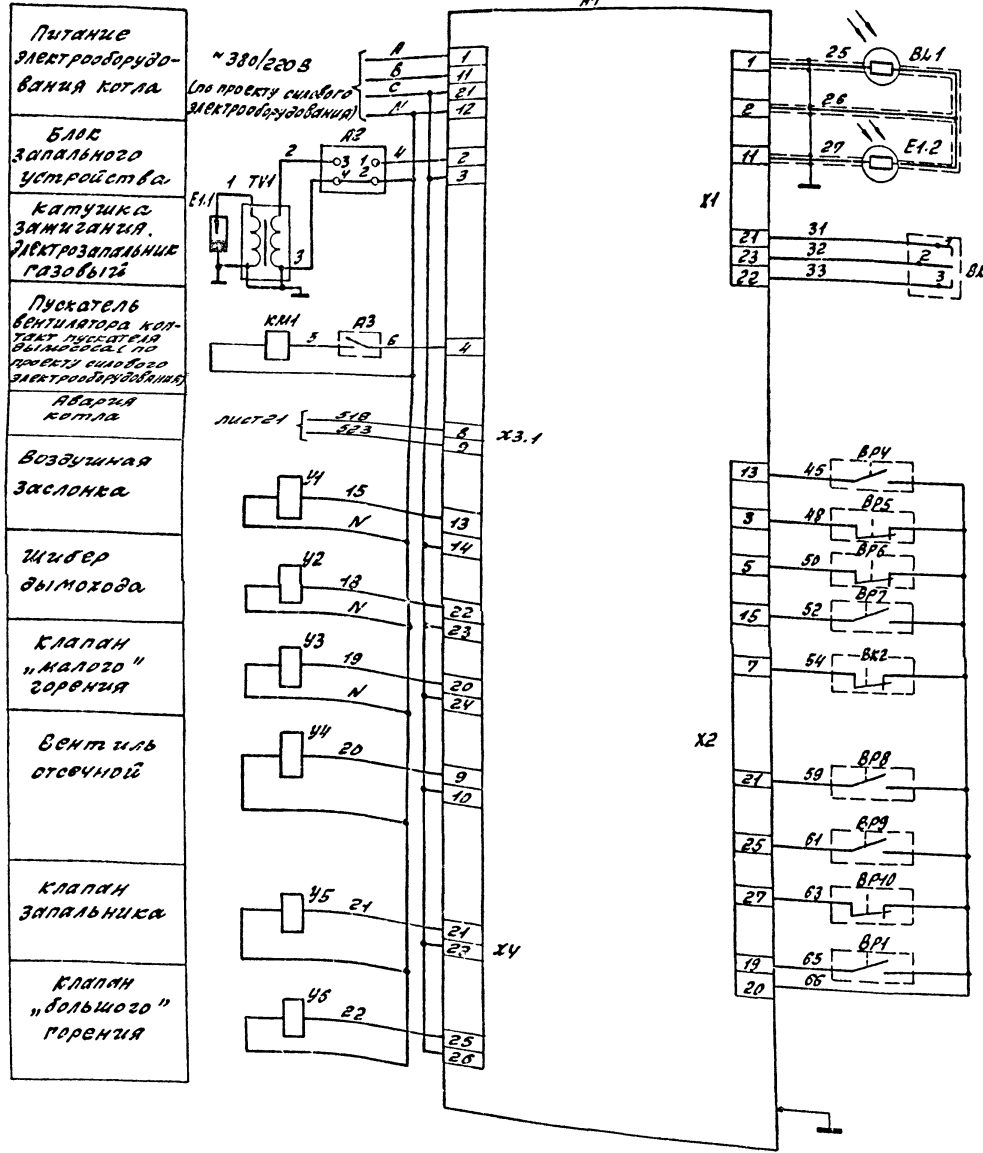 Питание
электрооборудо-
вания котла
Блок
запального
устройства
катушка
зажигания.
электрозапальник
газовый
Пускатель
вентилятора кон-
такт пускателя
дымососа (по
проекту силового
электрооборудования)
Авария
котла
Воздушная
заслонка
шибер
дымохода
клапан
„малого"
горения
Вентиль
отсечной
клапан
запальника
клапан
„большого"
горения
~380/220В
(по проекту силового
электрооборудования)
A
B
C
N
1
11
21
12
A2
2
3 1
4 2
4
2
3
1
TV1
E1.1
3
KM1
5
A3
6
4
лист 21
518
523
8
9
X3.1
У1
15
N
13
14
У2
18
N
22
23
У3
19
N
20
24
У4
20
9
10
У5
21
21
X4
У6
22
25
26
1
25
BL1
2
26
11
27
E1.2
X1
21
31
1
23
32
2
22
33
3
13
45
BP4
3
48
BP5
5
50
BP6
15
52
BP7
7
54
BK2
X2
21
59
BP8
25
61
BP9
27
63
BP10
19
65
BP1
20
66